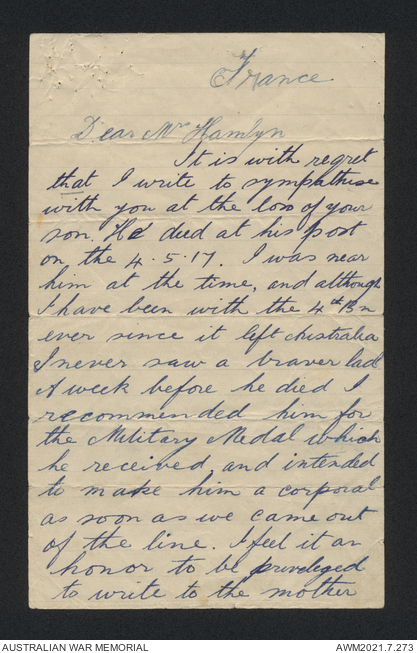 France
Dear Mrs Hamlyn
It is with regret
that I write to sympathise
with you at the loss of your
son. He died at his post
on the 4.5.17. I was near
him at the time, and although
I have been with the 4th Bn
ever since it left Australia
I never saw a braver lad
A week before he died I
recommended him for
the Military Medal which
he received, and intended
to make him a corporal
as soon as we came out
of the line. I feel it an
honor to be priveleged
to write to the mother
AUSTRALIAN WAR MEMORIAL
AWM2021.7.273